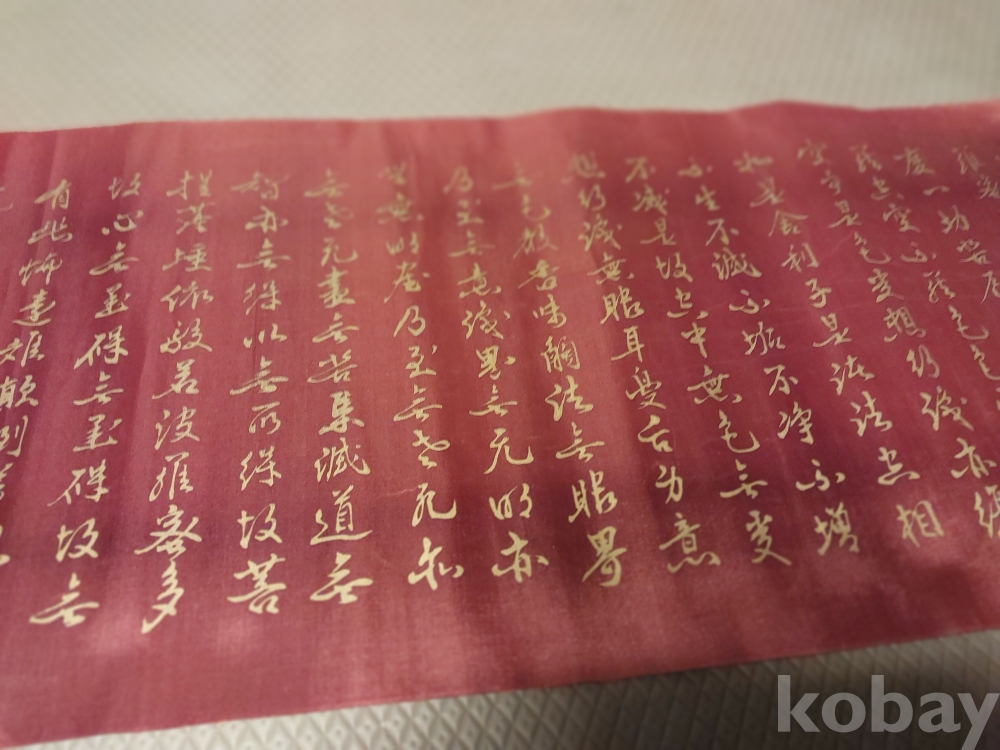 度一切苦厄
異空空不異色色
空即是色受想行識亦復
如是舍利子是諸法空相
不生不滅不垢不淨不增
不減是故空中無色無受
想行識無眼耳鼻舌身意
無色聲香味觸法無眼界
乃至無意識界無無明亦
無無明盡乃至無老死亦
無老死盡無苦集滅道無
智亦無得以無所得故菩
提薩埵依般若波羅蜜多
故心無罣礙無罣礙故無
有恐怖遠離顛倒夢
kobay